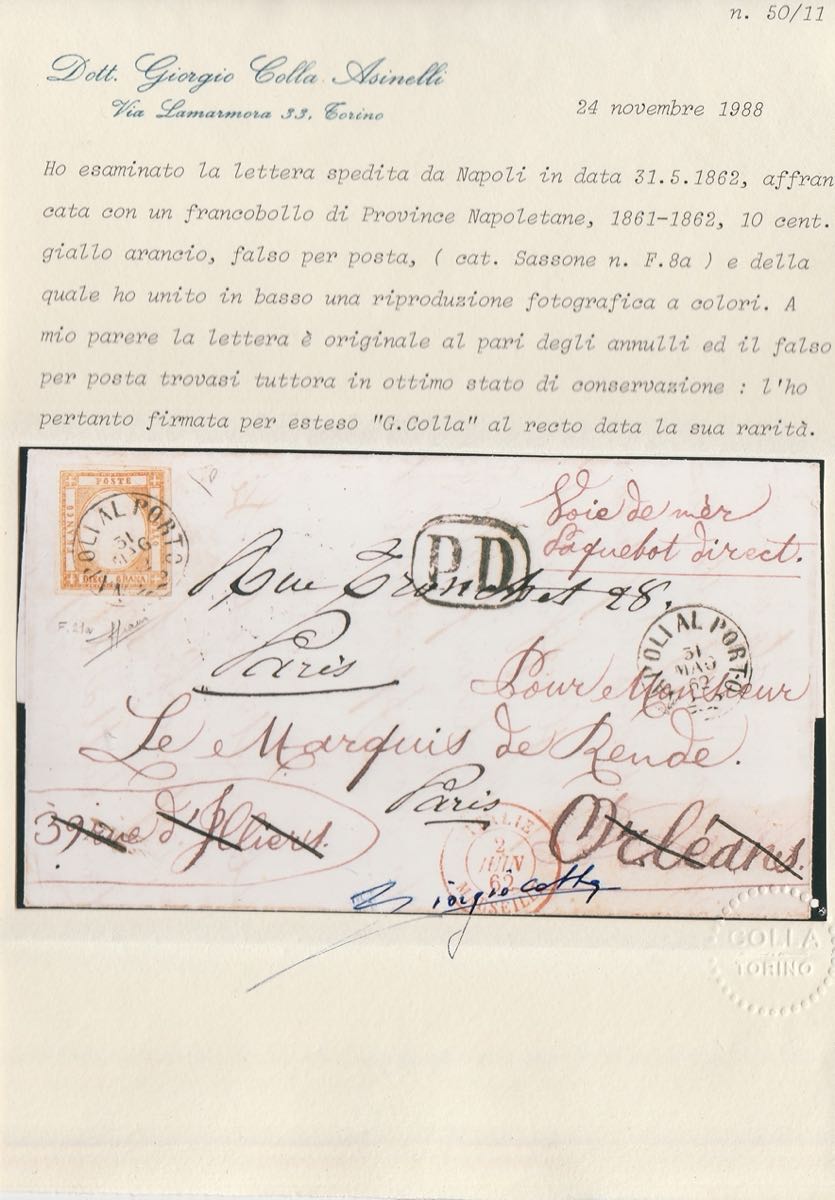 n. 50/11
Dott. Giorgio Colla Asinelli
Via Lamarmora 33, Torino
24 novembre 1988
Ho esaminato la lettera spedita da Napoli in data 31.5.1862, affran
cata con un francobollo di Province Napoletane, 1861-1862, 10 cent.
giallo arancio, falso per posta, ( cat. Sassone n. F.8a ) e della
quale ho unito in basso una riproduzione fotografica a colori. A
mio parere la lettera è originale al pari degli annulli ed il falso
per posta trovasi tuttora in ottimo stato di conservazione : l'ho
pertanto firmata per esteso "G.Colla" al recto data la sua rarità.
POSTE
FRANCO
DIECI GRANA
OLI AL PORTO
31
MAG
P.D.
Voie de mèr
Paquebot direct.
Rue Tronchet 28.
Paris
POLI AL PORTO
31
MAG
62
Pour Monsieur
Le Marquis de Rende.
Paris
39 rue d'Illiers.
Orléans.
ITALIE
2
JUIN
62
MARSEILLE
Giorgio Colla
COLLA
TORINO